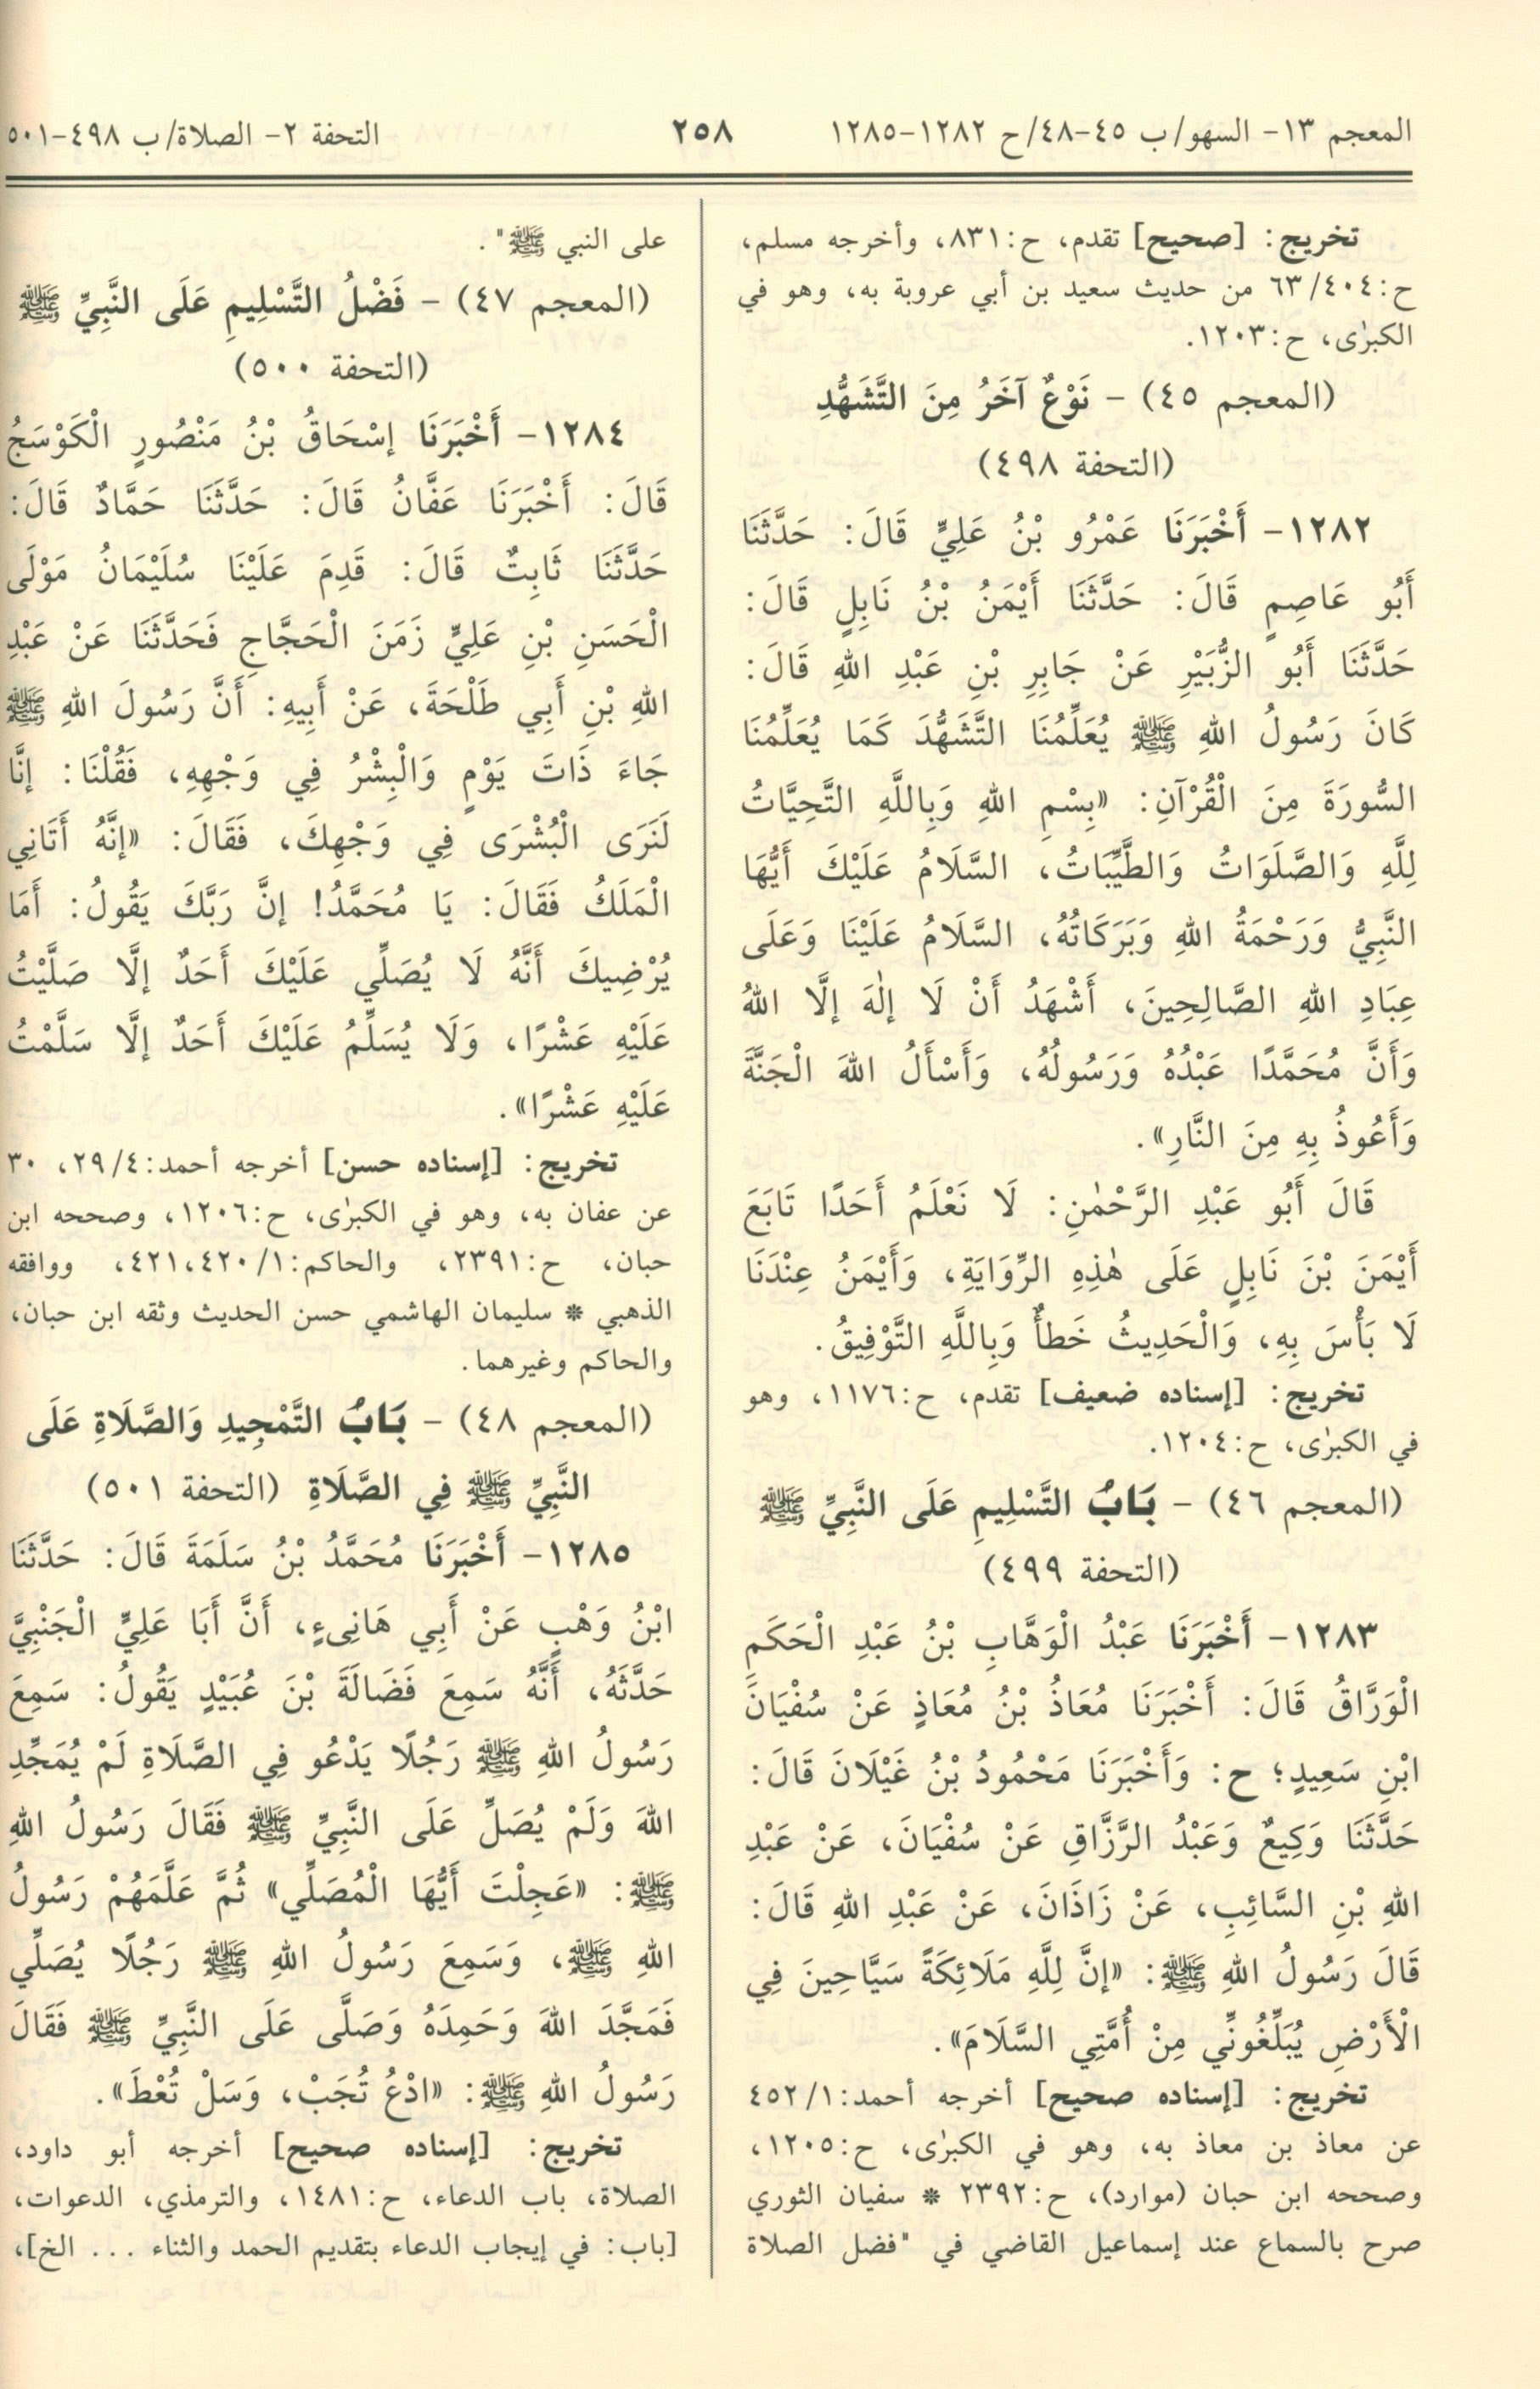 المعجم ١٣- السهو/ ب ٤٥-٤٨/ ح ١٢٨٢-١٢٨٥
٢٥٨
التحفة ٢- الصلاة/ ب ٤٩٨-٥٠١
تخريج: [صحيح] تقدم، ح:٨٣١، وأخرجه مسلم،
ح:٤٠٤/ ٦٣ من حديث سعيد بن أبي عروبة به، وهو في
الكبرٰى، ح:١٢٠٣.
(المعجم ٤٥) - نَوْعٌ آخَرُ مِنَ التَّشَهُّدِ
(التحفة ٤٩٨)
١٢٨٢- أَخْبَرَنَا عَمْرُو بْنُ عَلِيٍّ قَالَ: حَدَّثَنَا
أَبُو عَاصِمٍ قَالَ: حَدَّثَنَا أَيْمَنُ بْنُ نَابِلٍ قَالَ:
حَدَّثَنَا أَبُو الزُّبَيْرِ عَنْ جَابِرِ بْنِ عَبْدِ اللهِ قَالَ:
كَانَ رَسُولُ اللهِ ﷺ يُعَلِّمُنَا التَّشَهُّدَ كَمَا يُعَلِّمُنَا
السُّورَةَ مِنَ الْقُرْآنِ: «بِسْمِ اللهِ وَبِاللَّهِ التَّحِيَّاتُ
لِلَّهِ وَالصَّلَوَاتُ وَالطَّيِّبَاتُ، السَّلَامُ عَلَيْكَ أَيُّهَا
النَّبِيُّ وَرَحْمَةُ اللهِ وَبَرَكَاتُهُ، السَّلَامُ عَلَيْنَا وَعَلَى
عِبَادِ اللهِ الصَّالِحِينَ، أَشْهَدُ أَنْ لَا إِلٰهَ إلَّا اللهُ
وَأَنَّ مُحَمَّدًا عَبْدُهُ وَرَسُولُهُ، وَأَسْأَلُ اللهَ الْجَنَّةَ
وَأَعُوذُ بِهِ مِنَ النَّارِ».
قَالَ أَبُو عَبْدِ الرَّحْمٰنِ: لَا نَعْلَمُ أَحَدًا تَابَعَ
أَيْمَنَ بْنَ نَابِلٍ عَلَى هٰذِهِ الرِّوَايَةِ، وَأَيْمَنُ عِنْدَنَا
لَا بَأْسَ بِهِ، وَالْحَدِيثُ خَطأٌ وَبِاللَّهِ التَّوْفِيقُ.
تخريج: [إسناده ضعيف] تقدم، ح:١١٧٦، وهو
في الكبرٰى، ح:١٢٠٤.
(المعجم ٤٦) - بَابُ التَّسْلِيمِ عَلَى النَّبِيِّ ﷺ
(التحفة ٤٩٩)
١٢٨٣- أَخْبَرَنَا عَبْدُ الْوَهَّابِ بْنُ عَبْدِ الْحَكَمِ
الْوَرَّاقُ قَالَ: أَخْبَرَنَا مُعَاذُ بْنُ مُعَاذٍ عَنْ سُفْيَانَ
ابْنِ سَعِيدٍ؛ ح: وَأَخْبَرَنَا مَحْمُودُ بْنُ غَيْلَانَ قَالَ:
حَدَّثَنَا وَكِيعٌ وَعَبْدُ الرَّزَّاقِ عَنْ سُفْيَانَ، عَنْ عَبْدِ
اللهِ بْنِ السَّائِبِ، عَنْ زَاذَانَ، عَنْ عَبْدِ اللهِ قَالَ:
قَالَ رَسُولُ اللهِ ﷺ: «إنَّ لِلَّهِ مَلَائِكَةً سَيَّاحِينَ فِي
الْأَرْضِ يُبَلِّغُونِّي مِنْ أُمَّتِي السَّلَامَ».
تخريج: [إسناده صحيح] أخرجه أحمد:١/ ٤٥٢
عن معاذ بن معاذ به، وهو في الكبرٰى، ح:١٢٠٥،
وصححه ابن حبان (موارد)، ح:٢٣٩٢ * سفيان الثوري
صرح بالسماع عند إسماعيل القاضي في "فضل الصلاة
على النبي ﷺ".
(المعجم ٤٧) - فَضْلُ التَّسْلِيمِ عَلَى النَّبِيِّ ﷺ
(التحفة ٥٠٠)
١٢٨٤- أَخْبَرَنَا إسْحَاقُ بْنُ مَنْصُورٍ الْكَوْسَجُ
قَالَ: أَخْبَرَنَا عَفَّانُ قَالَ: حَدَّثَنَا حَمَّادٌ قَالَ:
حَدَّثَنَا ثَابِتٌ قَالَ: قَدِمَ عَلَيْنَا سُلَيْمَانُ مَوْلَى
الْحَسَنِ بْنِ عَلِيٍّ زَمَنَ الْحَجَّاجِ فَحَدَّثَنَا عَنْ عَبْدِ
اللهِ بْنِ أَبِي طَلْحَةَ، عَنْ أَبِيهِ: أَنَّ رَسُولَ اللهِ ﷺ
جَاءَ ذَاتَ يَوْمٍ وَالْبِشْرُ فِي وَجْهِهِ، فَقُلْنَا: إنَّا
لَنَرَى الْبُشْرَى فِي وَجْهِكَ، فَقَالَ: «إنَّهُ أَتَانِي
الْمَلَكُ فَقَالَ: يَا مُحَمَّدُ! إنَّ رَبَّكَ يَقُولُ: أَمَا
يُرْضِيكَ أَنَّهُ لَا يُصَلِّي عَلَيْكَ أَحَدٌ إلَّا صَلَّيْتُ
عَلَيْهِ عَشْرًا، وَلَا يُسَلِّمُ عَلَيْكَ أَحَدٌ إلَّا سَلَّمْتُ
عَلَيْهِ عَشْرًا».
تخريج: [إسناده حسن] أخرجه أحمد:٤/ ٢٩، ٣٠
عن عفان به، وهو في الكبرٰى، ح:١٢٠٦، وصححه ابن
حبان، ح:٢٣٩١، والحاكم:١/ ٤٢٠،٤٢١، ووافقه
الذهبي * سليمان الهاشمي حسن الحديث وثقه ابن حبان،
والحاكم وغيرهما.
(المعجم ٤٨) - بَابُ التَّمْجِيدِ وَالصَّلَاةِ عَلَى
النَّبِيِّ ﷺ فِي الصَّلَاةِ (التحفة ٥٠١)
١٢٨٥- أَخْبَرَنَا مُحَمَّدُ بْنُ سَلَمَةَ قَالَ: حَدَّثَنَا
ابْنُ وَهْبٍ عَنْ أَبِي هَانِىءٍ، أَنَّ أَبَا عَلِيٍّ الْجَنْبِيَّ
حَدَّثَهُ، أَنَّهُ سَمِعَ فَضَالَةَ بْنَ عُبَيْدٍ يَقُولُ: سَمِعَ
رَسُولُ اللهِ ﷺ رَجُلًا يَدْعُو فِي الصَّلَاةِ لَمْ يُمَجِّدِ
اللهَ وَلَمْ يُصَلِّ عَلَى النَّبِيِّ ﷺ فَقَالَ رَسُولُ اللهِ
ﷺ: «عَجِلْتَ أَيُّهَا الْمُصَلِّي» ثُمَّ عَلَّمَهُمْ رَسُولُ
اللهِ ﷺ، وَسَمِعَ رَسُولُ اللهِ ﷺ رَجُلًا يُصَلِّي
فَمَجَّدَ اللهَ وَحَمِدَهُ وَصَلَّى عَلَى النَّبِيِّ ﷺ فَقَالَ
رَسُولُ اللهِ ﷺ: «ادْعُ تُجَبْ، وَسَلْ تُعْطَ».
تخريج: [إسناده صحيح] أخرجه أبو داود،
الصلاة، باب الدعاء، ح:١٤٨١، والترمذي، الدعوات،
[باب: في إيجاب الدعاء بتقديم الحمد والثناء ... الخ]،